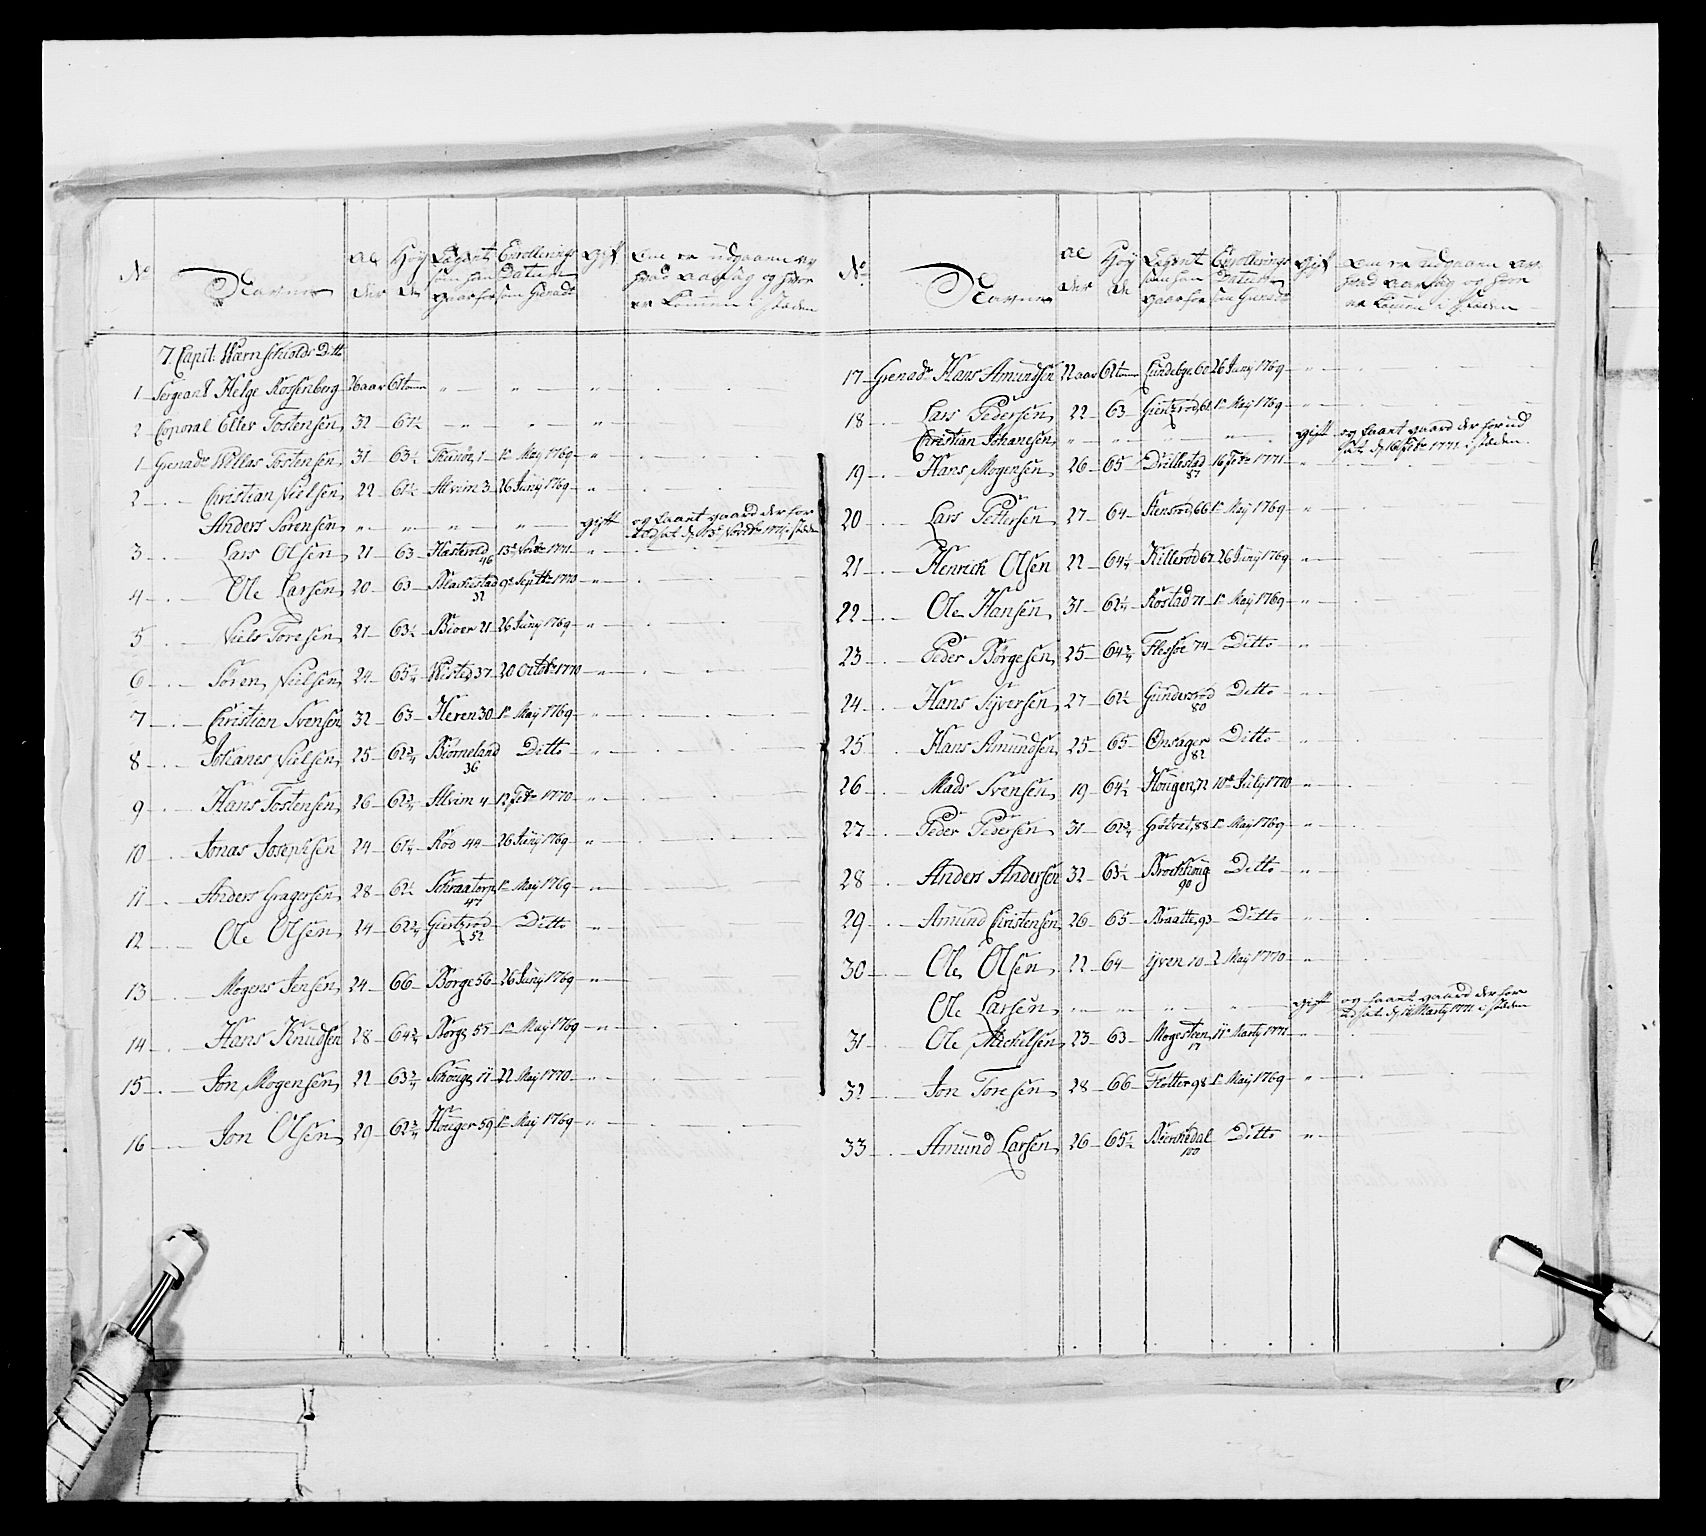 No Navne Al der Høy de Lægent som han vaar for Enrollerings Datum som Grenadr Gift
7. Capit. Wærnschiolds Ditto
1 Sergeant Helge Rossenberg 26 aar 61 tom " " "
2 Corporal Elter Tostensen 32 61½ " " "
1 Grenadr Willas Tostensen 31 63½ Thusøe 1 1e May 1769 "
2 Christian Nielsen 22 61½ Alvim 3 26 Juny 1769 "
Anders Sørensen " " " " gift og faaet gaard der for
udsat d. 13e Novbr 1771 i stæden
3 Lars Olsen 21 63 Hasterød 46 13e Novbr 1771 "
4 Ole Larsen 20 63 Blackestad 32 9e Septbr 1770 "
5 Niels Toresen 21 63½ Biver 21 26 Juny 1769 "
6 Søren Nielsen 24 65¼ Wisted 37 20 Octobr 1770 "
7 Christian Svensen 32 63 Heren 30 1e May 1769 "
8 Johanes Nielsen 25 62¾ Biørneland 36 Ditto "
9 Hans Tostensen 26 62¾ Alvim 4 12 Febr 1770 "
10 Jonas Josephsen 24 61¼ Rød 44 26 Juny 1769 "
11 Anders Gragersen 28 62½ Schraatorp 47 1e May 1769 "
12 Ole Olsen 24 62¾ Giestzrød 52 Ditto "
13 Mogens Jensen 24 66 Borge 56 26 Juny 1769 "
14 Hans Knudsen 28 64¾ Borge 55 1e May 1769 "
15 Jon Mogensen 22 63¾ Schouge 11 22 May 1770 "
16 Jon Olsen 29 62¾ Houger 59 1e May 1769 "
No Navne Al der Høy de Lægent som han vaar for Enrollerings Datum som Grenadr Gift
17 Grenadr Hans Amundsen 22 aar 62 tom Lundebye 60 26 Juny 1769 "
18 Lars Pedersen 22 63 Gientzrød 61 1e May 1769 "
Christian Johanesen " " " " gift og faaet gaard der for ud
sat d. 16 Febr 1771 i stæden
19 Hans Mogensen 26 65 Drillestad 87 16 Febr 1771 "
20 Lars Pettersen 27 64 Stensrød 66 1e May 1769 "
21 Henrich Olsen 22 64¼ Killerød 67 26 Juny 1769 "
22 Ole Hansen 31 62¼ Rostad 71 1e May 1769 "
23 Peder Børgesen 25 64¾ Flesøe 74 Ditto "
24 Hans Syversen 27 62½ Gundersrød 80 Ditto "
25 Hans Amundsen 25 65 Onsager 82 Ditto "
26 Mads Svensen 19 64½ Hougen 72 10e July 1770 "
27 Peder Pedersen 31 62¾ Grötvet 88 1e May 1769 "
28 Anders Andersen 32 63½ Brockhoug 90 Ditto "
29 Amund Christensen 26 65 Braatte 93 Ditto "
30 Ole Olsen 22 64 Yven 10 2 May 1770 "
Ole Larsen " " " " gift og faaet gaard der for
udsat d. 11 Marty 1771 i stæden
31 Ole Michelsen 23 63 Mogesteen 17 11e Marty 1771 "
32 Jon Toresen 28 66 Fløtter 98 1e May 1769 "
33 Amund Larsen 26 65½ Biennedal 100 Ditto "